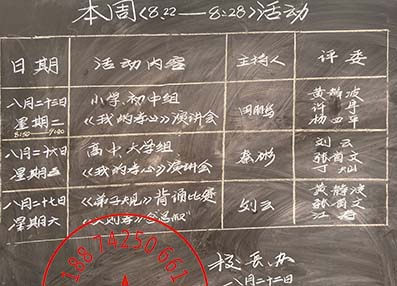 本周(8.22——8.28)活动
日期 活动内容 主持人 评委
八月二十三日
星期二
8:50-9:00
小学、初中组
《我的孝心》演讲会
黄静波
许丹
杨四平
八月二十六日
星期五
高中、大学组
《我的孝心》演讲会
蔡彬
刘云
张首文
丁灿
八月二十七日
星期六
《弟子规》背诵比赛
刘云
黄静波
张首文
江涛
校长办
八月二十二日
188 7A250 661